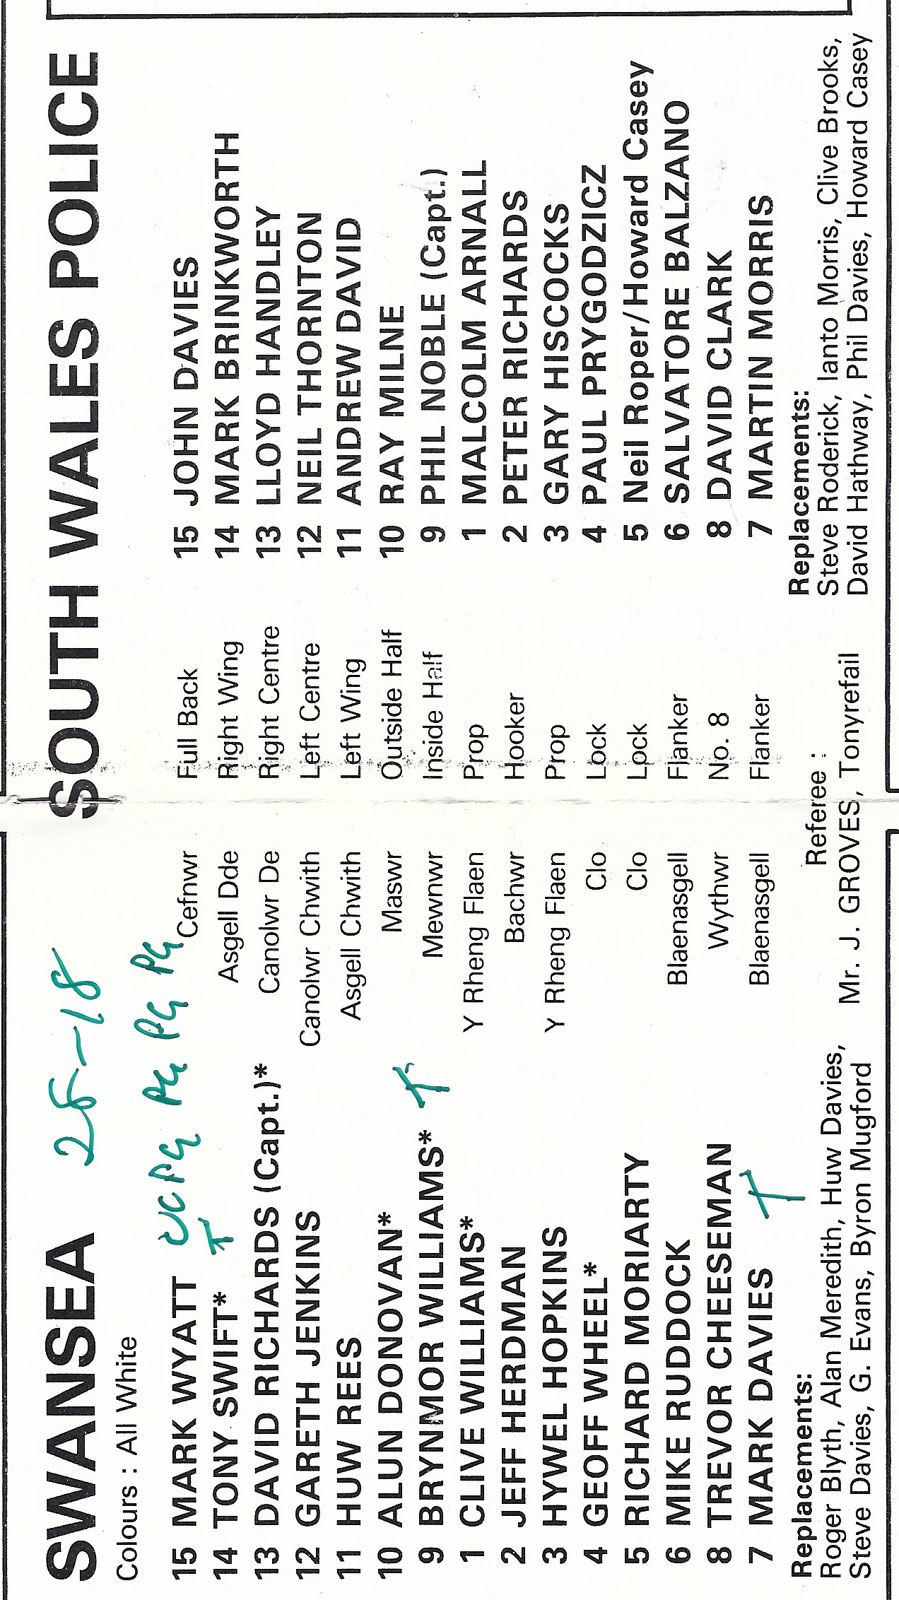 SWANSEA 26-18
Colours : All White
15 MARK WYATT UCPG PG PG PG Cefnwr
14 TONY SWIFT* T Asgell Dde
13 DAVID RICHARDS (Capt.)* Canolwr De
12 GARETH JENKINS Canolwr Chwith
11 HUW REES Asgell Chwith
10 ALUN DONOVAN* Maswr
9 BRYNMOR WILLIAMS* T Mewnwr
1 CLIVE WILLIAMS* Y Rheng Flaen
2 JEFF HERDMAN Bachwr
3 HYWEL HOPKINS Y Rheng Flaen
4 GEOFF WHEEL* Clo
5 RICHARD MORIARTY Clo
6 MIKE RUDDOCK Blaenasgell
8 TREVOR CHEESEMAN Wythwr
7 MARK DAVIES T Blaenasgell
Replacements:
Roger Blyth, Alan Meredith, Huw Davies,
Steve Davies, G. Evans, Byron Mugford
Referee :
Mr. J. GROVES, Tonyrefail
SOUTH WALES POLICE
Full Back 15 JOHN DAVIES
Right Wing 14 MARK BRINKWORTH
Right Centre 13 LLOYD HANDLEY
Left Centre 12 NEIL THORNTON
Left Wing 11 ANDREW DAVID
Outside Half 10 RAY MILNE
Inside Half 9 PHIL NOBLE (Capt.)
Prop 1 MALCOLM ARNALL
Hooker 2 PETER RICHARDS
Prop 3 GARY HISCOCKS
Lock 4 PAUL PRYGODZICZ
Lock 5 Neil Roper/Howard Casey
Flanker 6 SALVATORE BALZANO
No. 8 8 DAVID CLARK
Flanker 7 MARTIN MORRIS
Replacements:
Steve Roderick, Ianto Morris, Clive Brooks,
David Hathway, Phil Davies, Howard Casey